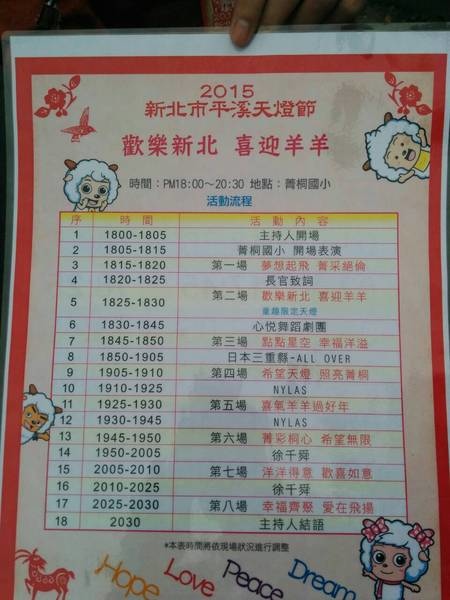 2015
新北市平溪天燈節
歡樂新北 喜迎羊羊
時間：PM18:00～20:30 地點：菁桐國小
活動流程
序 時間 活動內容
1 1800-1805 主持人開場
2 1805-1815 菁桐國小 開場表演
3 1815-1820 第一場 夢想起飛 菁采絕倫
4 1820-1825 長官致詞
5 1825-1830 第二場 歡樂新北 喜迎羊羊
童趣限定天燈
6 1830-1845 心悦舞蹈劇團
7 1845-1850 第三場 點點星空 幸福洋溢
8 1850-1905 日本三重縣-ALL OVER
9 1905-1910 第四場 希望天燈 照亮菁桐
10 1910-1925 NYLAS
11 1925-1930 第五場 喜氣羊羊過好年
12 1930-1945 NYLAS
13 1945-1950 第六場 菁彩桐心 希望無限
14 1950-2005 徐千舜
15 2005-2010 第七場 洋洋得意 歡喜如意
16 2010-2025 徐千舜
17 2025-2030 第八場 幸福齊聚 愛在飛揚
18 2030 主持人結語
*本表時間將依現場狀況進行調整
Hope Love Peace Dream